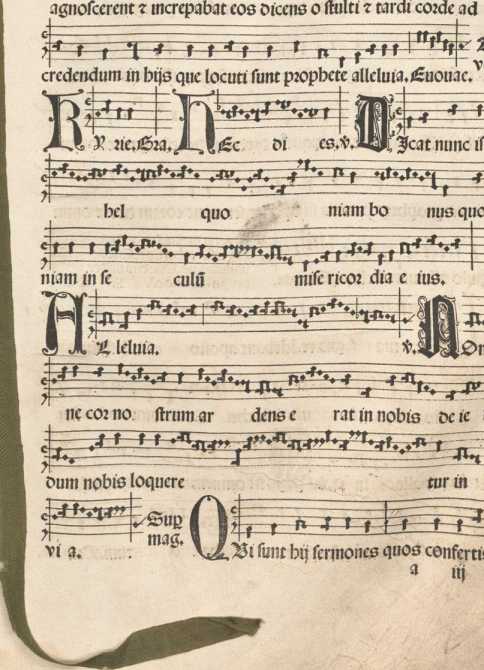 agnoscerent ⁊ increpabat eos dicens o stulti ⁊ tardi corde ad
credendum in hijs que locuti sunt prophete alleluia. Euouae.
KYrie. Gra. HEc di es. v. DIcat nunc is
hel quo niam bo nus quo
niam in se culū mise ricor dia e ius.
ALleluia. v. NOn
ne cor no strum ar dens e rat in nobis de ie
dum nobis loquere tur in
vi a. Sup
mag. QVi sunt hij sermones quos confertis
a iij